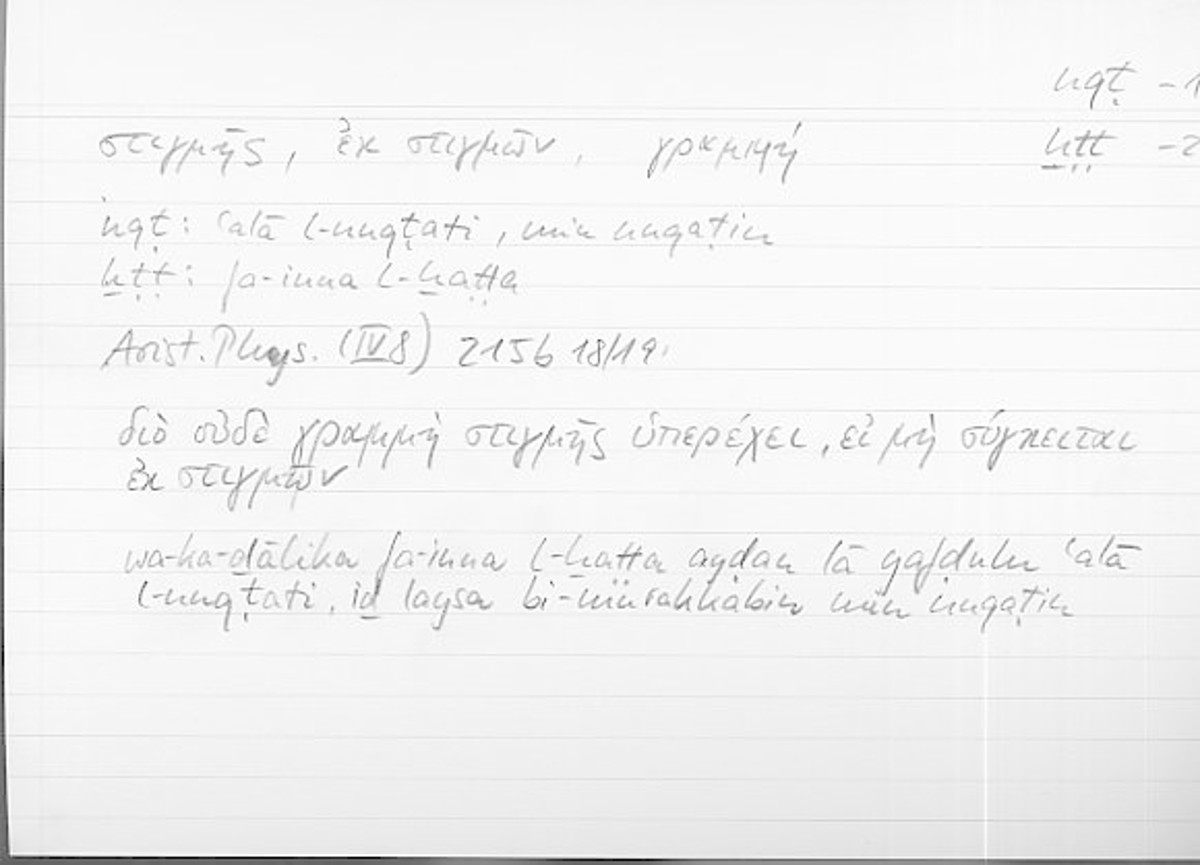 nqṭ -1
στιγμῆς, ἐκ στιγμῶν, γραμμή
ẖṭṭ -2
nqṭ: ʿalā l-nuqṭati, min nuqaṭin
ẖṭṭ: fa-inna l-ẖaṭṭa
Arist. Phys. (IV 8) 215b 18/19:
διὸ οὐδὲ γραμμὴ στιγμῆς ὑπερέχει, εἰ μὴ σύγκειται
ἐκ στιγμῶν
wa-ka-ḏālika fa-inna l-ẖaṭṭa ayḍan lā yafḍulu ʿalā
l-nuqṭati, iḏ laysa bi-murakkabin min nuqaṭin